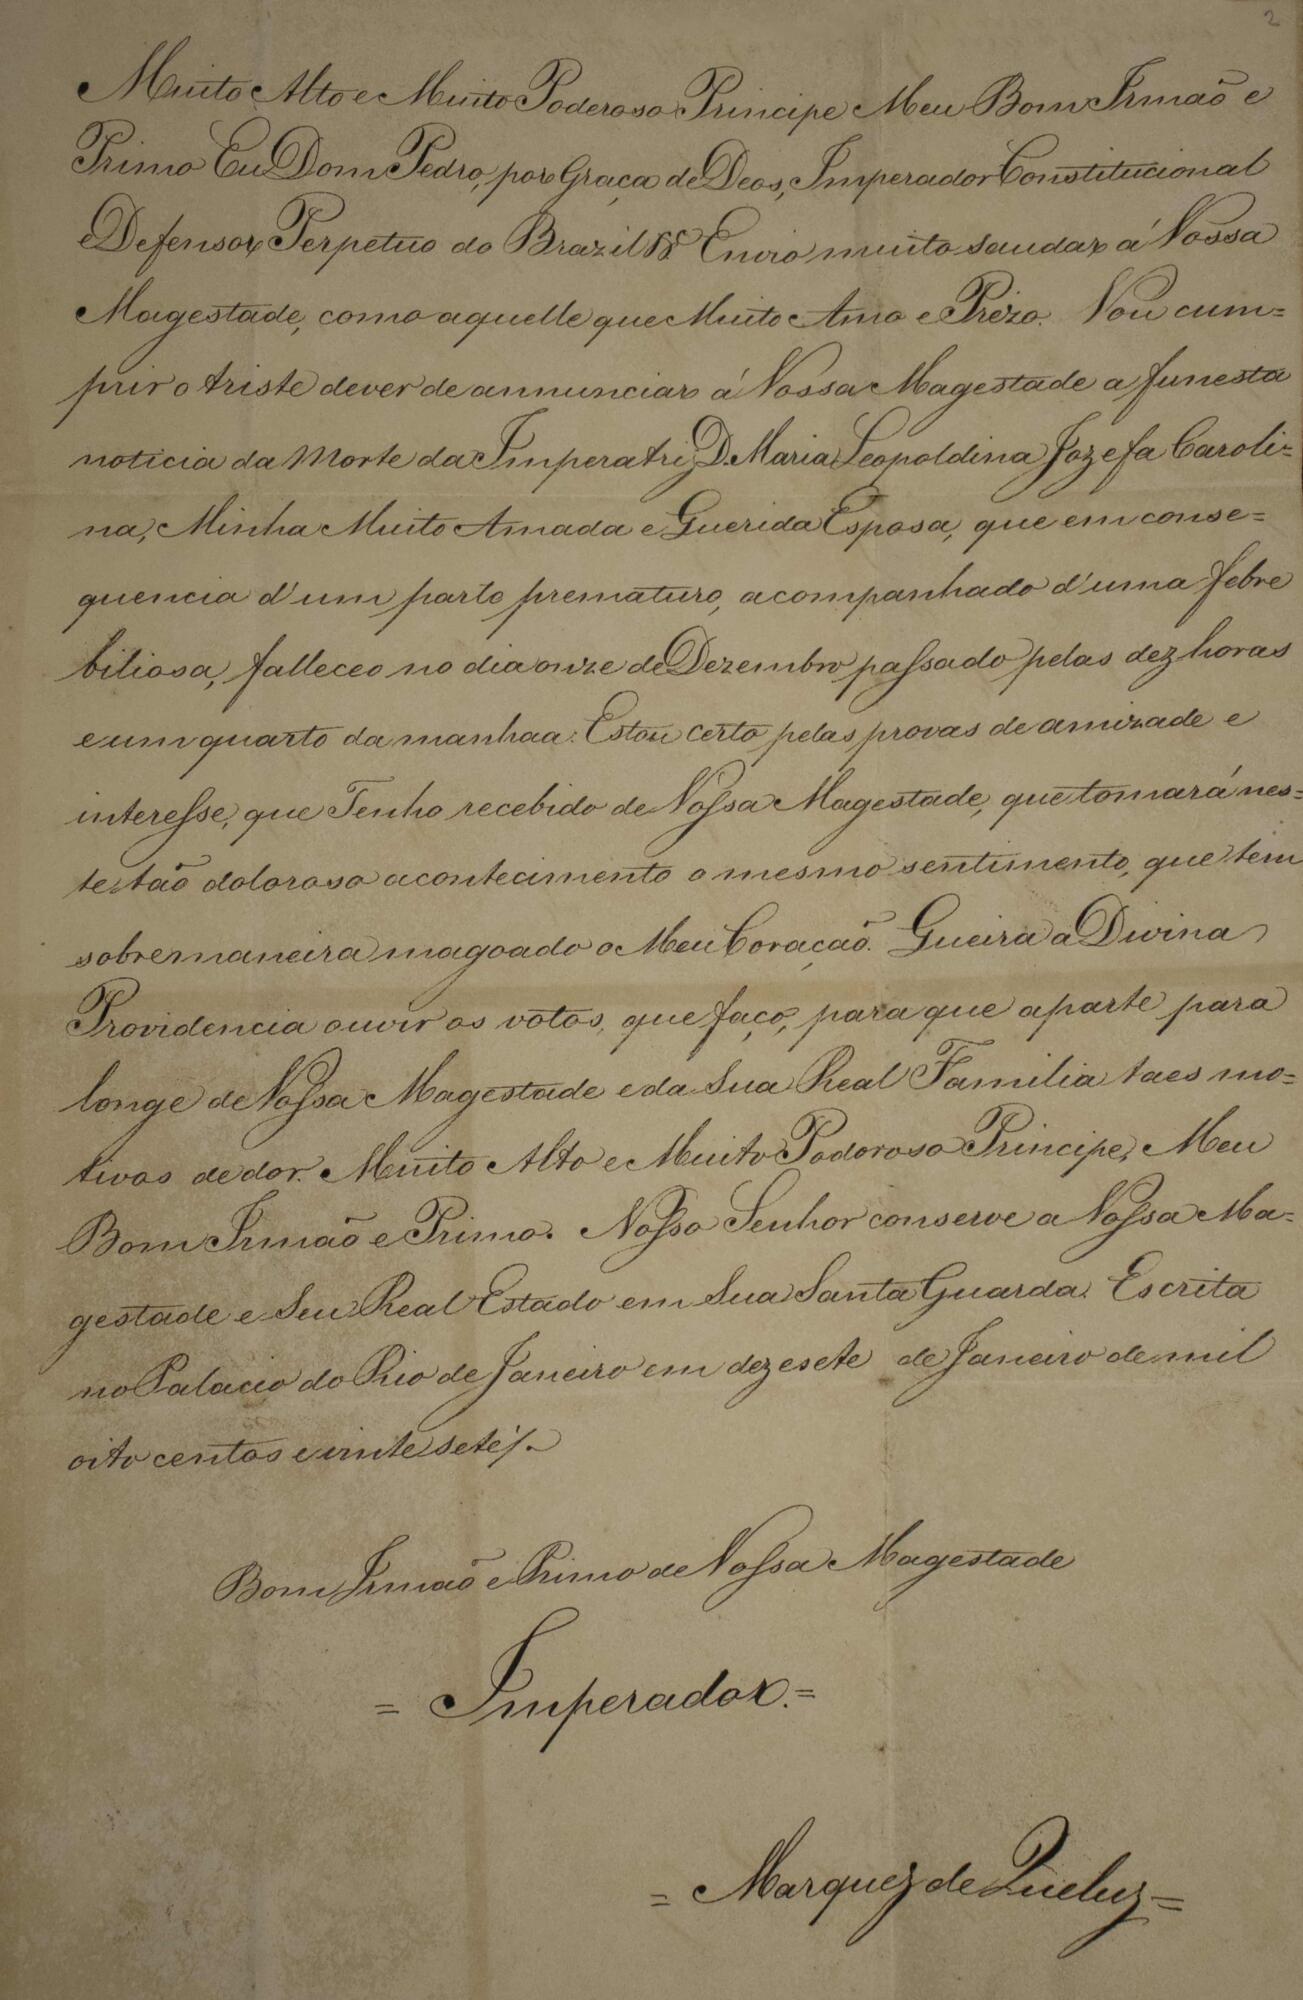 2
Muito Alto e Muito Poderoso Principe Meu Bom Irmaõ e
Primo Eu Dom Pedro, por Graça de Deos, Imperador Constitucional
e Defensor Perpetuo do Brazil &&. Envio muito saudar á Vossa
Magestade, como aquelle que Muito Amo e Prézo. Vou cum=
prir o triste dever de annunciar á Vossa Magestade a funesta
noticia da Morte da Imperatriz D. Maria Leopoldina Jozefa Caroli=
na, Minha Muito Amada e Querida Esposa, que em conse=
quencia d'um parto prematuro, acompanhado d'uma febre
biliosa, falleceo no dia onze de Dezembro passado pelas dez horas
e um quarto da manhaa. Estou certo pelas provas de amizade e
interesse, que Tenho recebido de Vossa Magestade, que tomará nes=
te taõ doloroso acontecimento o mesmo sentimento, que tem
sobremaneira magoado o Meu Coraçaõ. Queira a Divina
Providencia ouvir os votos, que faço, para que aparte para
longe de Vossa Magestade e da Sua Real Familia taes mo=
tivos de dor. Muito Alto e Muito Podoroso Principe, Meu
Bom Irmaõ e Primo. Nosso Senhor conserve a Vossa Ma=
gestade e Seu Real Estado em Sua Santa Guarda. Escrita
no Palacio do Rio de Janeiro em dezesete de Janeiro de mil
oito centos e vinte sete/.
Bom Irmaõ e Primo de Vossa Magestade
= Imperador. =
= Marquez de Queluz =